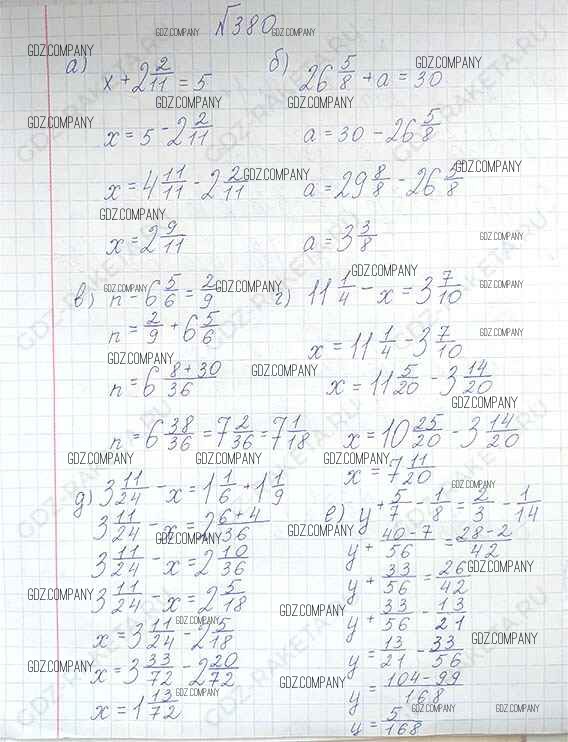 №380
а) x + 2 2/11 = 5
x = 5 - 2 2/11
x = 4 11/11 - 2 2/11
x = 2 9/11
б) 26 5/8 + a = 30
a = 30 - 26 5/8
a = 29 8/8 - 26 5/8
a = 3 3/8
в) n - 6 5/6 = 2/9
n = 2/9 + 6 5/6
n = 6 8+30/36
n = 6 38/36 = 7 2/36 = 7 1/18
г) 11 1/4 - x = 3 7/10
x = 11 1/4 - 3 7/10
x = 11 5/20 - 3 14/20
x = 10 25/20 - 3 14/20
x = 7 11/20
д) 3 11/24 - x = 1 1/6 + 1 1/9
3 11/24 - x = 2 6+4/36
3 11/24 - x = 2 10/36
3 11/24 - x = 2 5/18
x = 3 11/24 - 2 5/18
x = 3 33/72 - 2 20/72
x = 1 13/72
е) y + 5/7 - 1/8 = 2/3 - 1/14
y + 40-7/56 = 28-2/42
y + 33/56 = 26/42
y + 33/56 - 13/21
y = 13/21 - 33/56
y = 104-99/168
y = 5/168
GDZ.COMPANY
GDZ-RAKETA.RU